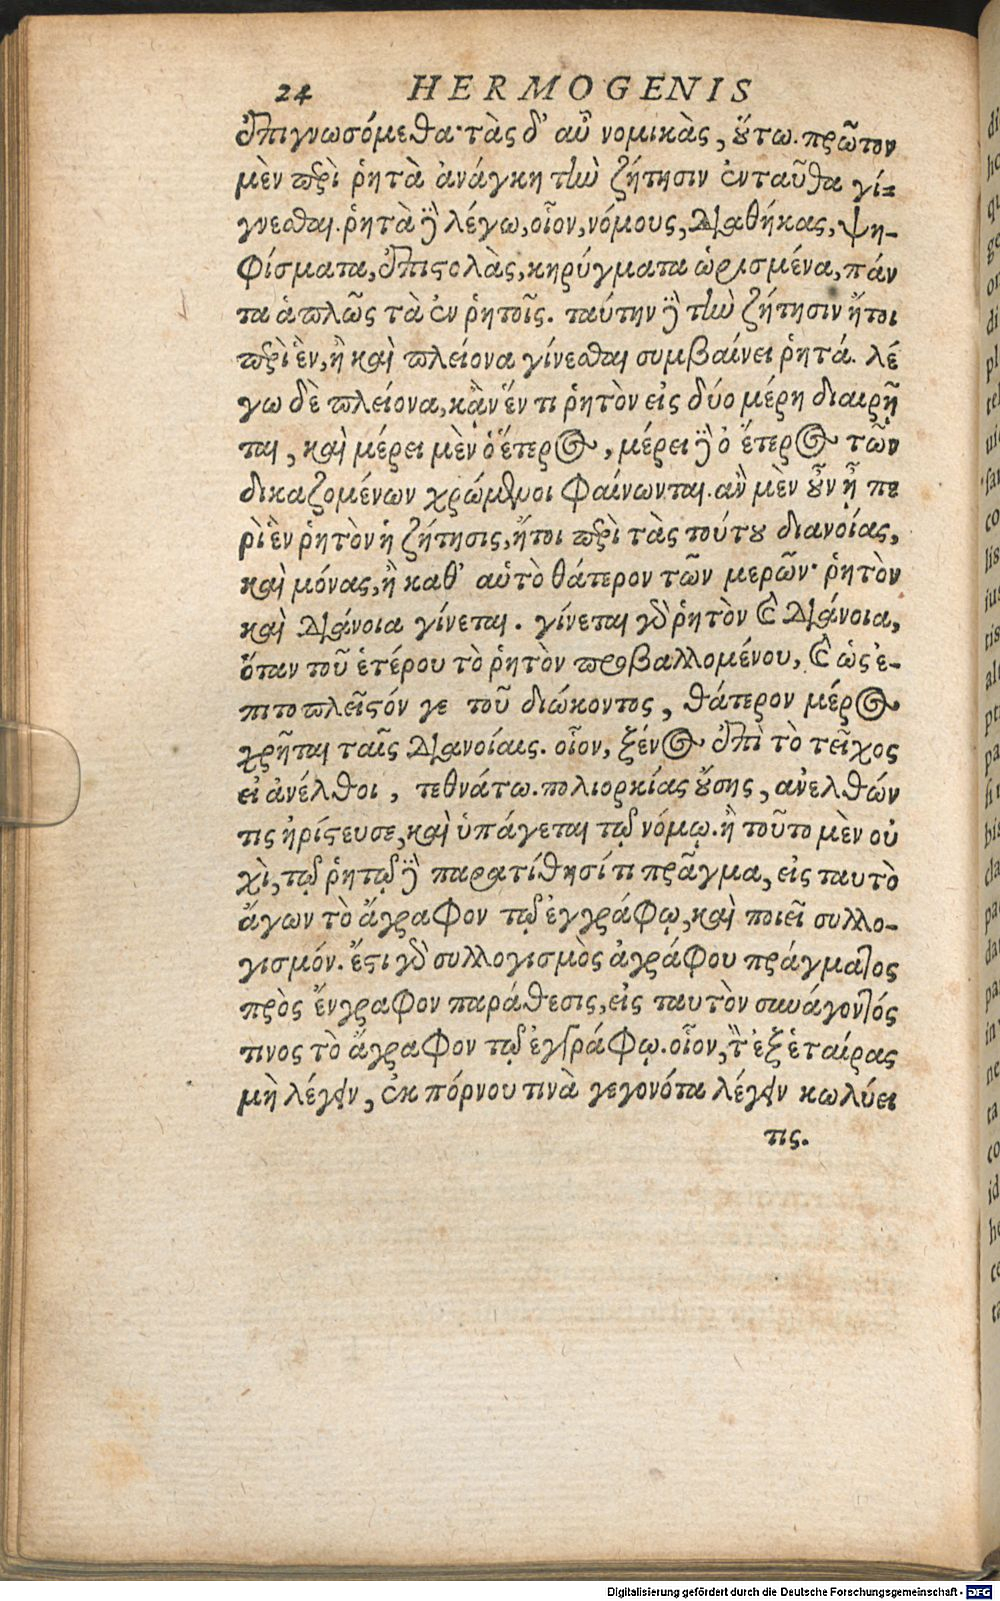 24 HERMOGENIS
ἐπιγνωσόμεθα· τὰς δ' αὖ νομικὰς, οὕτω. πρῶτον
μὲν περὶ ῥητὰ ἀνάγκη τὴν ζήτησιν ἐνταῦθα γί-
γνεσθαι. ῥητὰ δὲ λέγω, οἷον, νόμους, διαθήκας, ψη-
φίσματα, ἐπιστολὰς, κηρύγματα ὡρισμένα, πάν
τα ἁπλῶς τὰ ἐν ῥητοῖς. ταύτην δὲ τὴν ζήτησιν ἤτοι
περὶ ἓν, ἢ καὶ πλείονα γίνεσθαι συμβαίνει ῥητά. λέ
γω δὲ πλείονα, κἂν ἕν τι ῥητὸν εἰς δύο μέρη διαιρῆ
ται, καὶ μέρει μὲν ὁ ἕτερος, μέρει δὲ ὁ ἕτερος τῶν
δικαζομένων χρώμενοι φαίνωνται. ἂν μὲν οὖν ᾖ πε
ρὶ ἓν ῥητὸν ἡ ζήτησις, ἤτοι περὶ τὰς τούτου διανοίας,
καὶ μόνας, ἢ καθ' αὑτὸ θάτερον τῶν μερῶν· ῥητὸν
καὶ διάνοια γίνεται. γίνεται γὰρ ῥητὸν καὶ διάνοια,
ὅταν τοῦ ἑτέρου τὸ ῥητὸν προβαλλομένου, καὶ ὡς ἐ-
πιτοπλεῖστόν γε τοῦ διώκοντος, θάτερον μέρος
χρῆται ταῖς διανοίαις. οἷον, ξένος ἐπὶ τὸ τεῖχος
εἰ ἀνέλθοι, τεθνάτω. πολιορκίας οὔσης, ἀνελθών
τις ἠρίστευσε, καὶ ὑπάγεται τῷ νόμῳ. ἢ τοῦτο μὲν οὐ
χὶ, τῷ ῥητῷ δὲ παρατίθησί τι πρᾶγμα, εἰς ταυτὸ
ἄγων τὸ ἄγραφον τῷ ἐγγράφῳ, καὶ ποιεῖ συλλο-
γισμόν. ἔστι γὰρ συλλογισμὸς ἀγράφου πράγματος
πρὸς ἔνγραφον παράθεσις, εἰς ταυτὸν συνάγοντός
τινος τὸ ἄγραφον τῷ ἐγγράφῳ. οἷον, τὸν ἐξ ἑταίρας
μὴ λέγειν, ἐκ πόρνου τινὰ γεγονότα λέγειν κωλύει
τις.
Digitalisierung gefördert durch die Deutsche Forschungsgemeinschaft - DFG